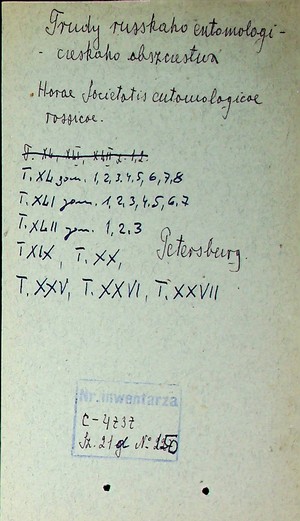 Trudy russkaho entomologi-
- czeskaho obszczestwa
Horae Societatis entomologicae
rossicae.
T. XL, XLI, XLII z. 1, 2.
T. XL zesz. 1, 2, 3, 4, 5, 6, 7, 8
T. XLI zesz. 1, 2, 3, 4, 5, 6, 7
T. XLII zesz. 1, 2, 3
T XIX, T. XX, Petersburg.
T. XXV, T. XXVI, T. XXVII
Nr. inwentarza
C-4737
Sz. 21 N°